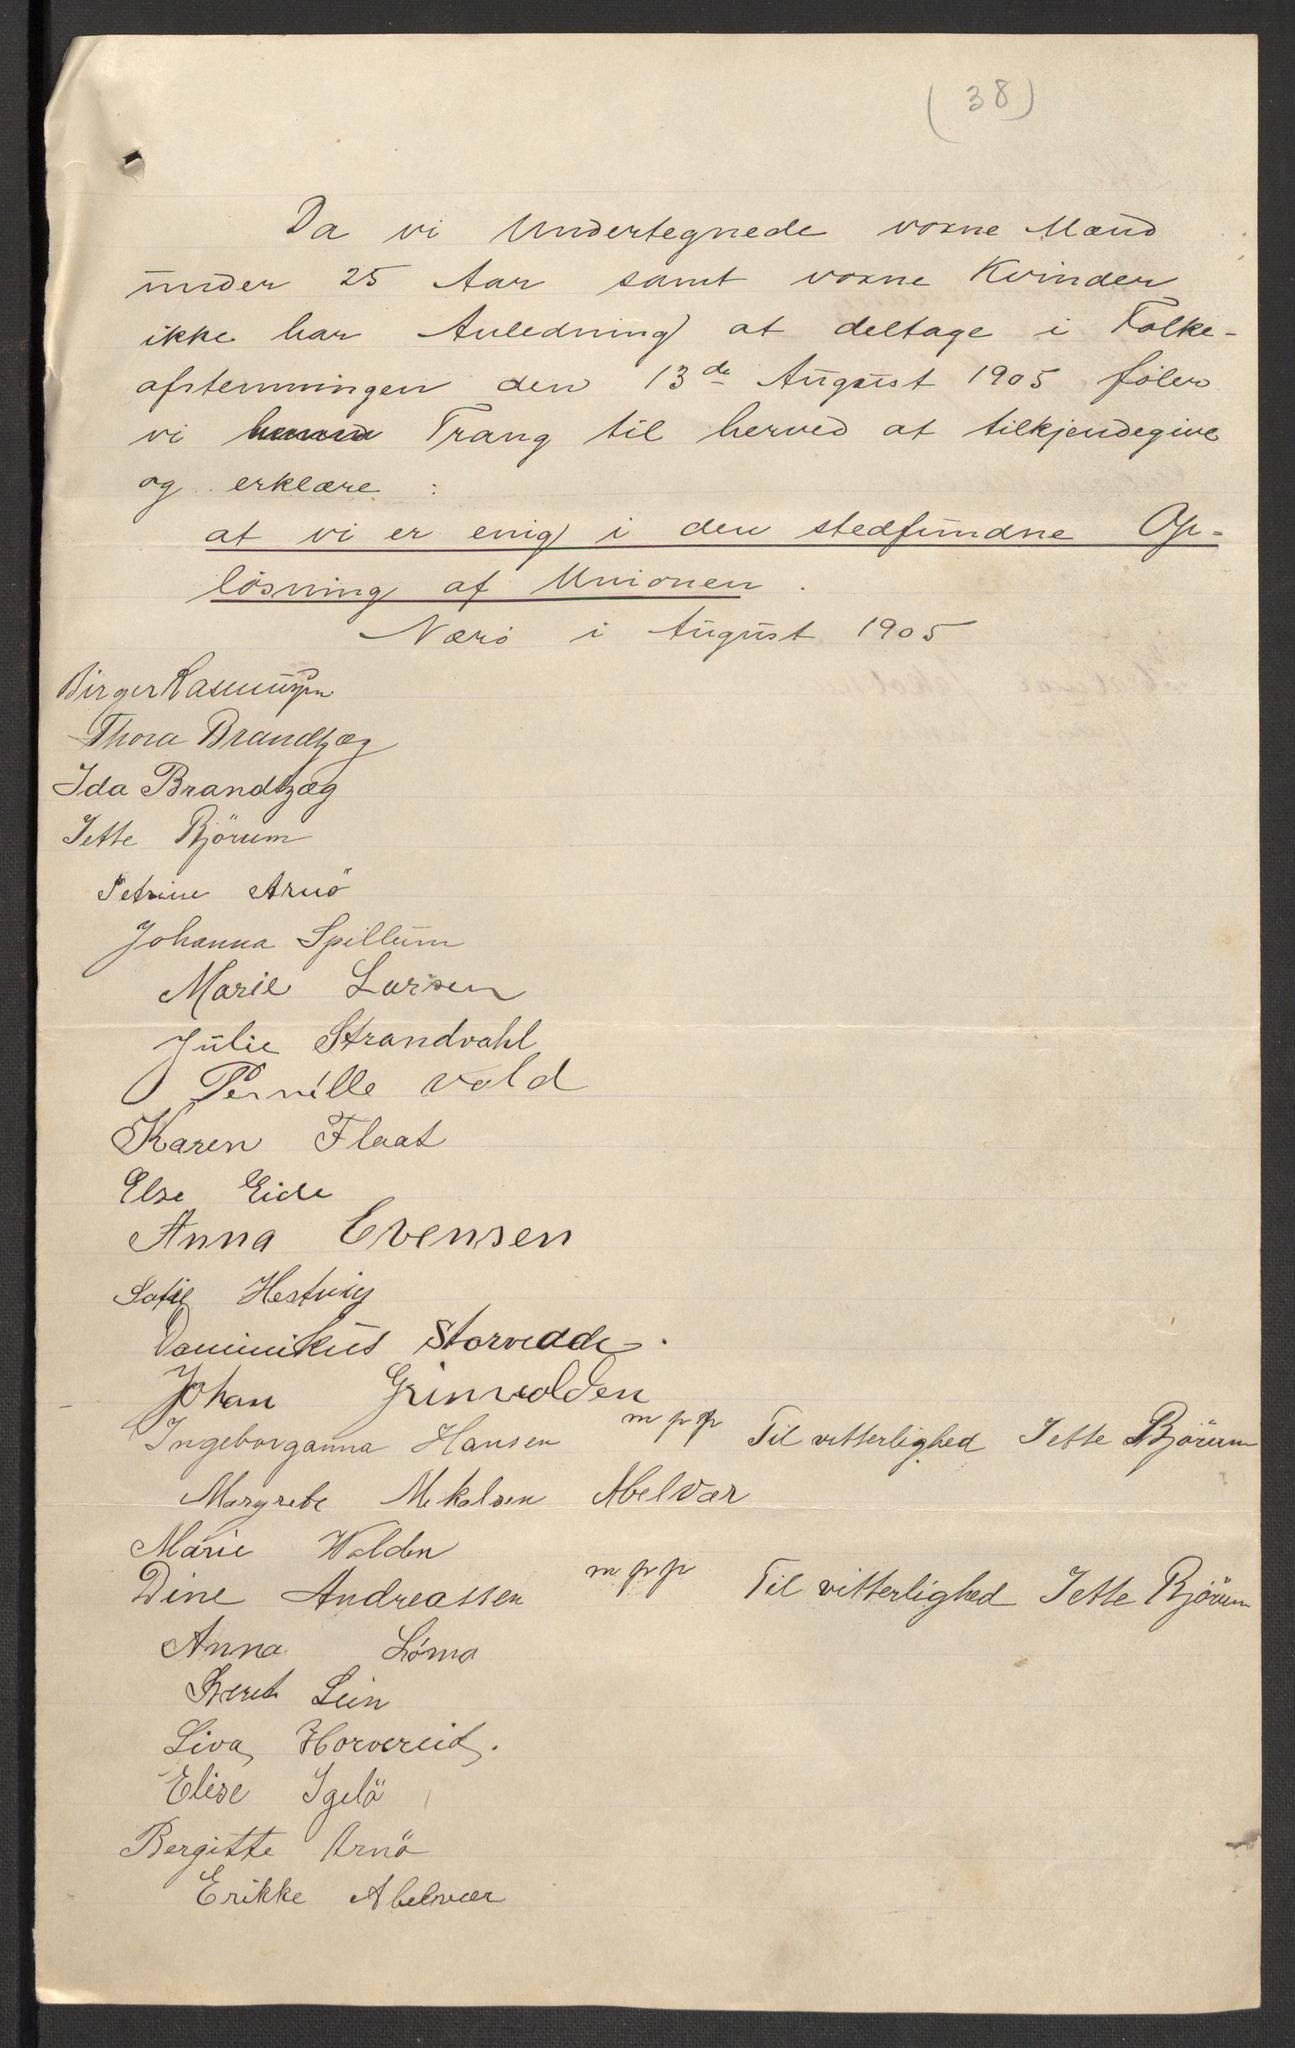 (38)
Da vi Undertegnede voxne Mænd
under 25 Aar samt voxne Kvinder
ikke har Anledning at deltage i Folke-
afstemningen den 13de August 1905 föler
vi Trang til herved at tilkjendegive
og erklære :
at vi er enig i den stedfundne Op-
lösning af Unionen.
Nærö i August 1905
Birger Rasmussen
Thora Brandtzæg
Ida Brandtzæg
Jette Björum
Petrine Arnö
Johanna Spillum
Marie Larsen
Julie Strandvahl
Pernille Vold
Karen Flaat
Else Eide
Anna Evensen
Sofie Hestvig
Dominikus Storvedde.
Johan Grinvolden
Ingeborganna Hansen m p p Til vitterlighed Jette Björum
Margrete Mekalsen Abelvær
Marie Walden
Dine Andreassen m p p Til vitterlighed Jette Björum
Anna Löma
Beret Lein
Liva Horvereid.
Elise Igelö
Bergitte Arnö
Erikke Abelvær